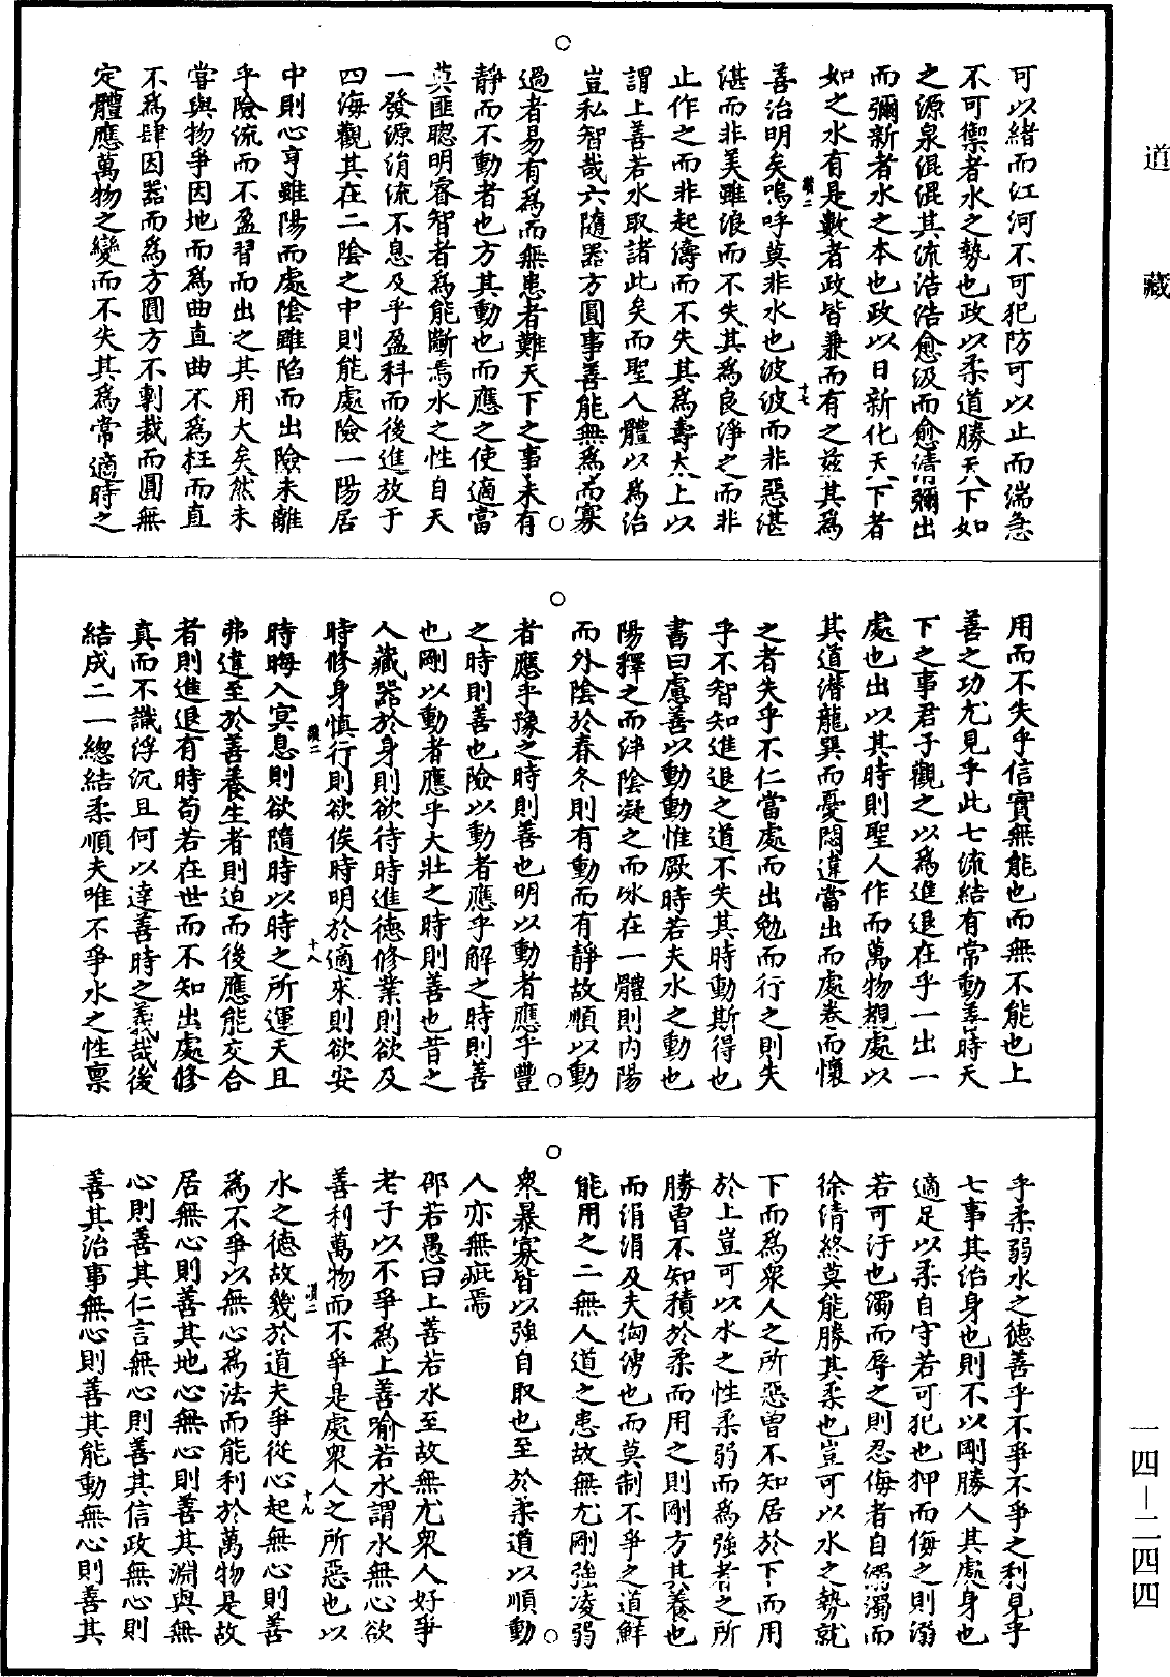 道藏
可以緒而江河不可犯防可以止而湍急
不可禦者水之勢也政以柔道勝天下如
之源泉混混其流浩浩愈汲而愈清彌出
而彌新者水之本也政以日新化天下者
如之水有是數者政皆兼而有之茲其為
善治明矣嗚呼莫非水也波波而非惡湛
湛而非美雖浪而不失其為良淨之而非
止作之而非起濤而不失其為壽太上以
謂上善若水取諸此矣而聖人體以為治
豈私智哉六隨器方圓事善能無為而寡
過者易有為而無患者難天下之事未有
靜而不動者也方其動也而應之使適當
莫匪聰明睿智者為能斷焉水之性自天
一發源涓流不息及乎盈科而後進放于
四海觀其在二陰之中則能處險一陽居
中則心亨雖陽而處陰雖陷而出險未離
乎險流而不盈習而出之其用大矣然未
嘗與物爭因地而為曲直曲不為枉而直
不為肆因器而為方圓方不剸裁而圓無
定體應萬物之變而不失其為常適時之
用而不失乎信實無能也而無不能也上
善之功尤見乎此七流結有常動善時天
下之事君子觀之以為進退在乎一出一
處也出以其時則聖人作而萬物覩處以
其道潛龍巽而憂悶違當出而處卷而懷
之者失乎不仁當處而出勉而行之則失
乎不智知進退之道不失其時動斯得也
書曰慮善以動動惟厥時若夫水之動也
陽釋之而泮陰凝之而冰在一體則內陽
而外陰於春冬則有動而有靜故順以動
者應乎豫之時則善也明以動者應乎豐
之時則善也險以動者應乎解之時則善
也剛以動者應乎大壯之時則善也昔之
人藏器於身則欲待時進德修業則欲及
時修身慎行則欲俟時明於適來則欲安
時晦入冥息則欲隨時以時之所運天且
弗違至於善養生者則迫而後應能交合
者則進退有時苟若在世而不知出處修
真而不識浮沉且何以達善時之義哉後
結成二一總結柔順夫唯不爭水之性稟
乎柔弱水之德善乎不爭不爭之利見乎
七事其治身也則不以剛勝人其處身也
適足以柔自守若可犯也狎而侮之則溺
若可汙也濁而辱之則忍侮者自溺濁而
徐清終莫能勝其柔也豈可以水之勢就
下而為眾人之所惡曾不知居於下而用
於上豈可以水之性柔弱而為強者之所
勝曾不知積於柔而用之則剛方其養也
而涓涓及夫洶湧也而莫制不爭之道鮮
能用之二無人道之患故無尤剛強凌弱
眾暴寡皆以強自取也至於柔道以順動
人亦無疵焉
邵若愚曰上善若水至故無尤眾人好爭
老子以不爭為上善喻若水謂水無心欲
善利萬物而不爭是處眾人之所惡也以
水之德故幾於道夫爭從心起無心則善
為不爭以無心為法而能利於萬物是故
居無心則善其地心無心則善其淵與無
心則善其仁言無心則善其信政無心則
善其治事無心則善其能動無心則善其
一四—二四四